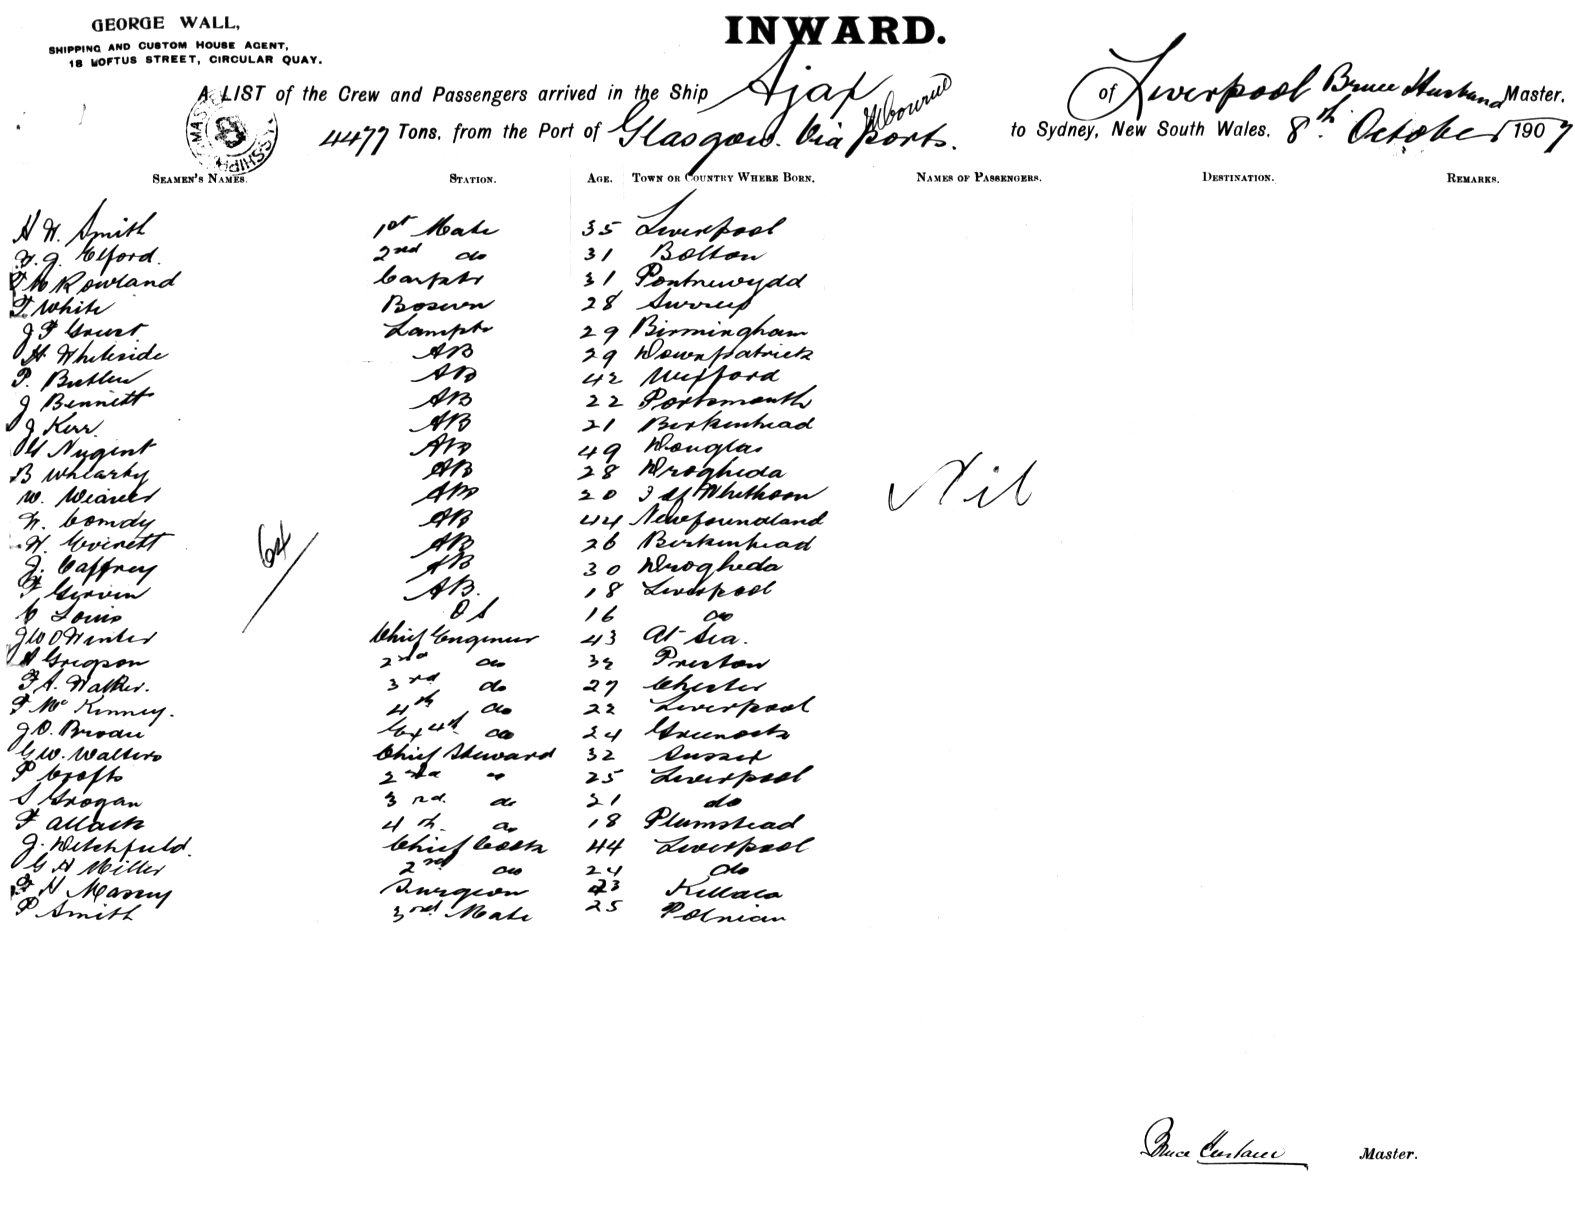 GEORGE WALL,
SHIPPING AND CUSTOM HOUSE AGENT,
18 LOFTUS STREET, CIRCULAR QUAY.
INWARD.
A LIST of the Crew and Passengers arrived in the Ship Ajax of Liverpool Bruce Husband Master.
4477 Tons, from the Port of Glasgow. Via Melbourne Ports. to Sydney, New South Wales, 8th October 1907
SEAMEN'S NAMES. STATION. AGE. TOWN OR COUNTRY WHERE BORN. NAMES OF PASSENGERS. DESTINATION. REMARKS.
H W. Smith 1st Mate 35 Liverpool
Elford. 2nd do 31 Bolton
Rowland Carptr 31 Pontnewydd
T White Boswn 28 Surrey
J F Lamptr 29 Birmingham
H. Whiteside AB 29 Downpatrick
P. Butler AB 42 Wexford
J Bennett AB 22 Portsmouth
J Kerr AB 21 Birkenhead
Nugent AB 49 Douglas
B Whearty AB 28 Drogheda
W. Weaver AB 20 Whithorn
W. Comdy AB 44 Newfoundland
W. Everett AB 26 Birkenhead
J. Caffrey AB 30 Drogheda
F Girvin AB. 18 Liverpool
C Louis OS 16 do
J W O Winter Chief Engineer 43 At Sea.
H Gregson 2nd do 32 Preston
F A. Walker. 3rd do 27 Chester
F McKinney. 4th do 22 Liverpool
J O. Ex 4th do 24 Greenock
G W. Walters Chief Steward 32 Sussex
P Crofts 2nd do 25 Liverpool
S Grogan 3rd. do 21 do
F Allack 4th. do 18 Plumstead
J. Chief Cook 44 Liverpool
G H Miller 2nd do 24 do
H Massey Surgeon 23 Killala
P Smith 3rd. Mate 25
Nil
64
Bruce Husband Master.